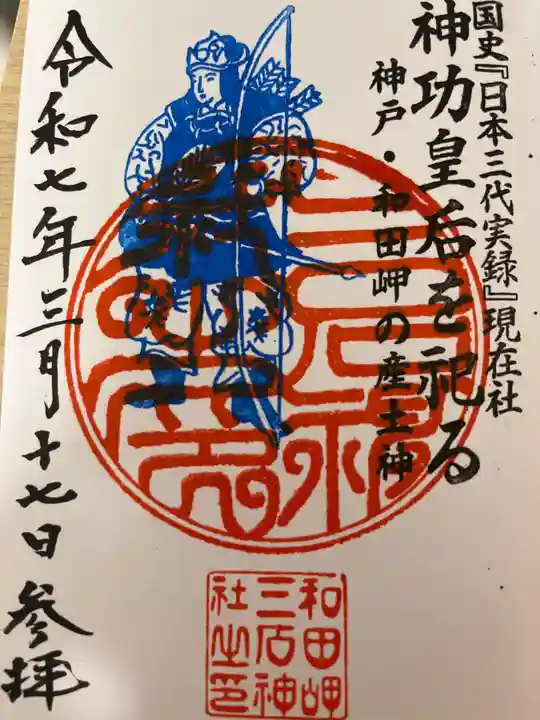 国史『日本三代実録』現在社
神功皇后を祀る
神戸・和田岬の産土神
令和七年三月十七日参拝
和田岬
三石神
社之印